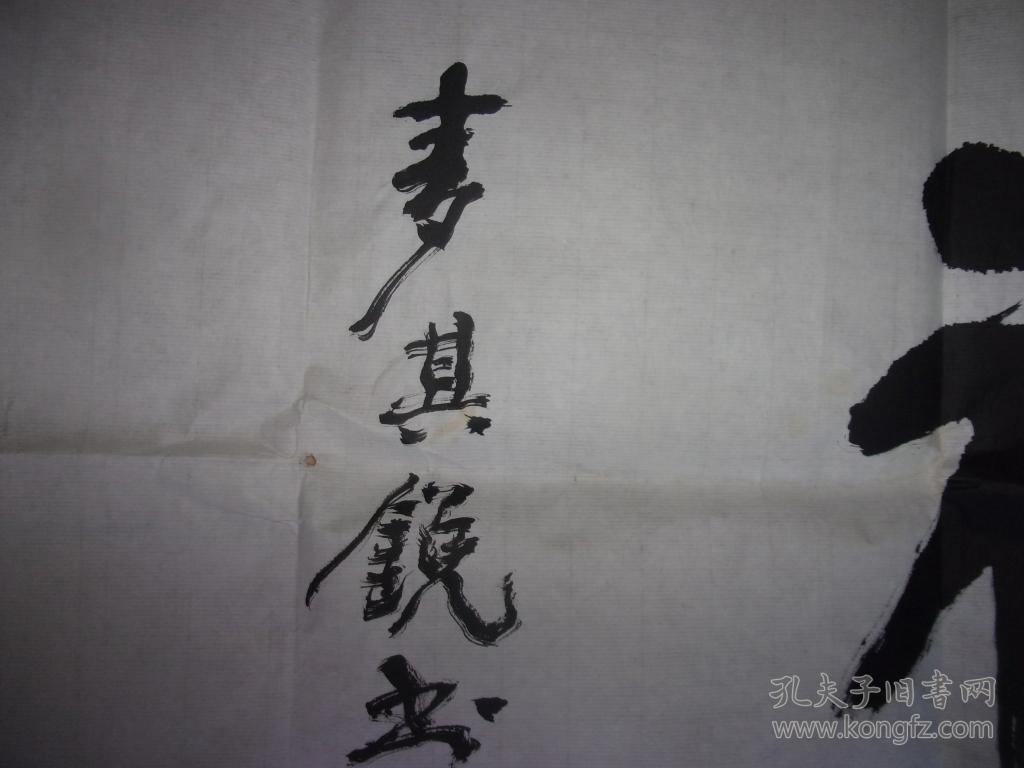 麦其鋭书
孔夫子旧书网
www.kongfz.com